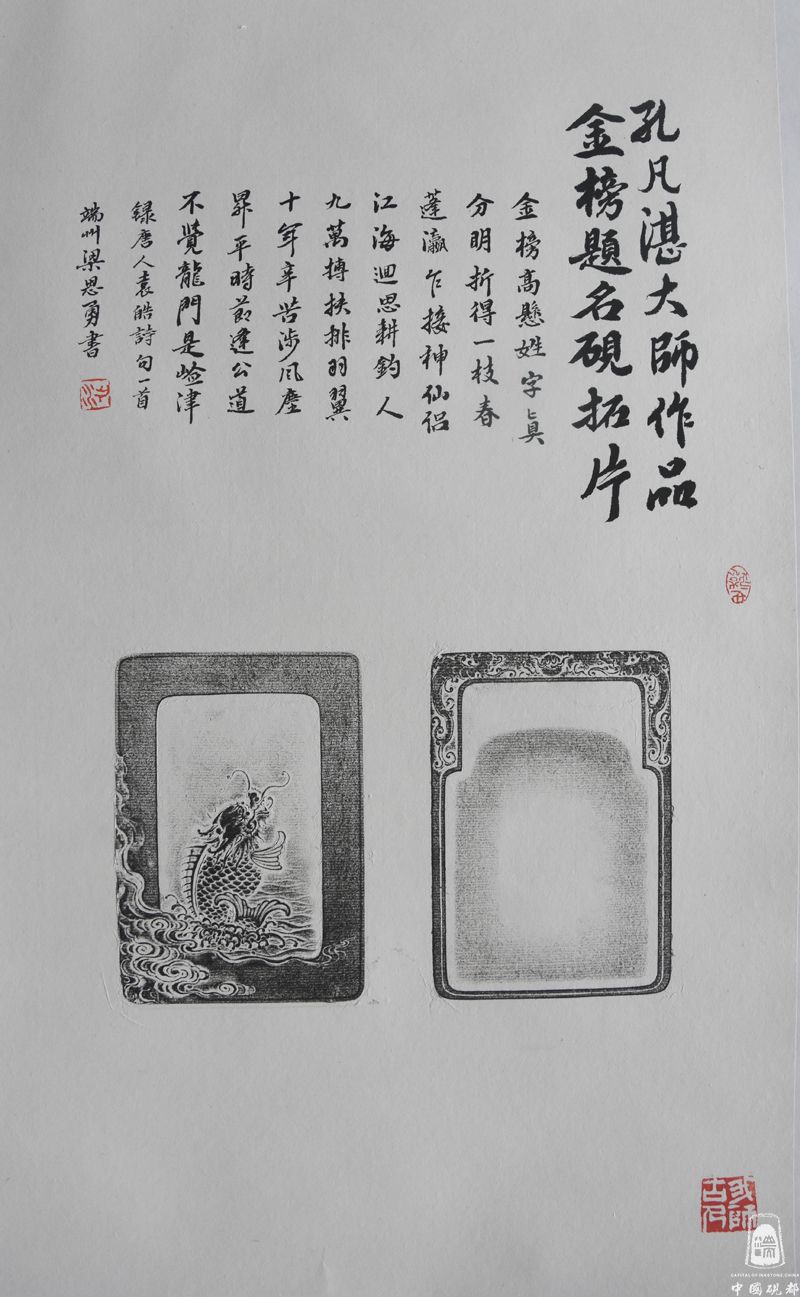 孔凡湛大師作品
金榜題名硯拓片
金榜高懸姓字眞
分明折得一枝春
蓬瀛乍接神仙侣
江海迴思耕釣人
九萬摶扶排羽翼
十年辛苦涉风塵
昇平時節逢公道
不覺龍門是嶮津
録唐人袁皓詩句一首
端州梁思勇書
我師
古人
端
CAPITAL OF INKSTONE, CHINA
中國硯都